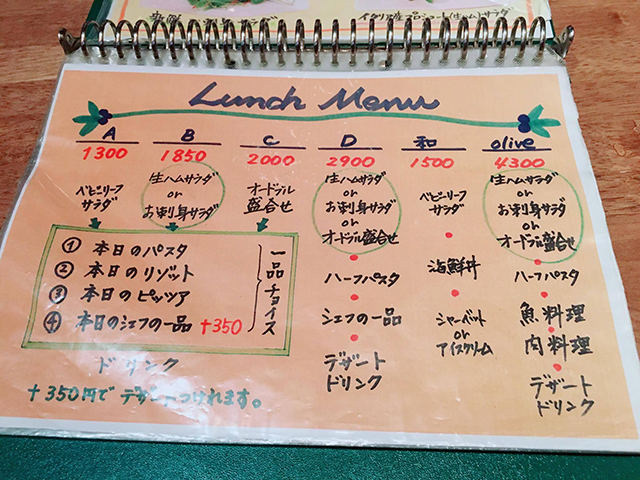 Lunch Menu
A
1300
ベビーリーフ
サラダ
B
1850
生ハムサラダ
or
お刺身サラダ
C
2000
オードブル
盛合せ
① 本日のパスタ
② 本日のリゾット
③ 本日のピッツァ
④ 本日のシェフの一品 +350
一品チョイス
ドリンク
+350円で デザートつけれます。
D
2900
生ハムサラダ
or
お刺身サラダ
or
オードブル盛合せ
ハーフパスタ
シェフの一品
デザート
ドリンク
和
1500
ベビーリーフ
サラダ
海鮮丼
シャーベット
or
アイスクリーム
olive
4300
生ハムサラダ
or
お刺身サラダ
or
オードブル盛合せ
ハーフパスタ
魚料理
肉料理
デザート
ドリンク